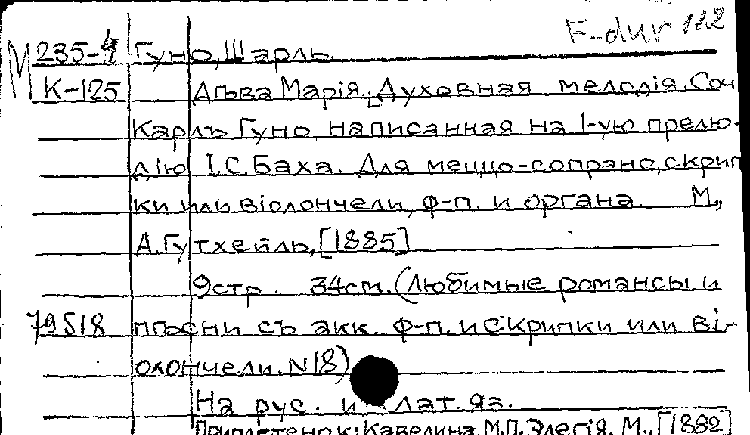 F-dur 112
М 235-4 Гуно, Шарль
К-125 Дѣва Марія. Духовная мелодія. Соч.
Карлъ Гуно, написанная на 1-ую прелю-
дію І.С. Баха. Для меццо-сопрано, скрип
ки или віолончели, ф-п. и органа. М.,
А. Гутхейль, [1885]
9 стр. 34 см. (Любимые романсы и
79518 пѣсни съ акк. ф-п. и скрипки или ві-
олончели. N 18)
На рус. и лат. яз.
Приплетено к: Кавелина М.П. Элегія. М., [1882]